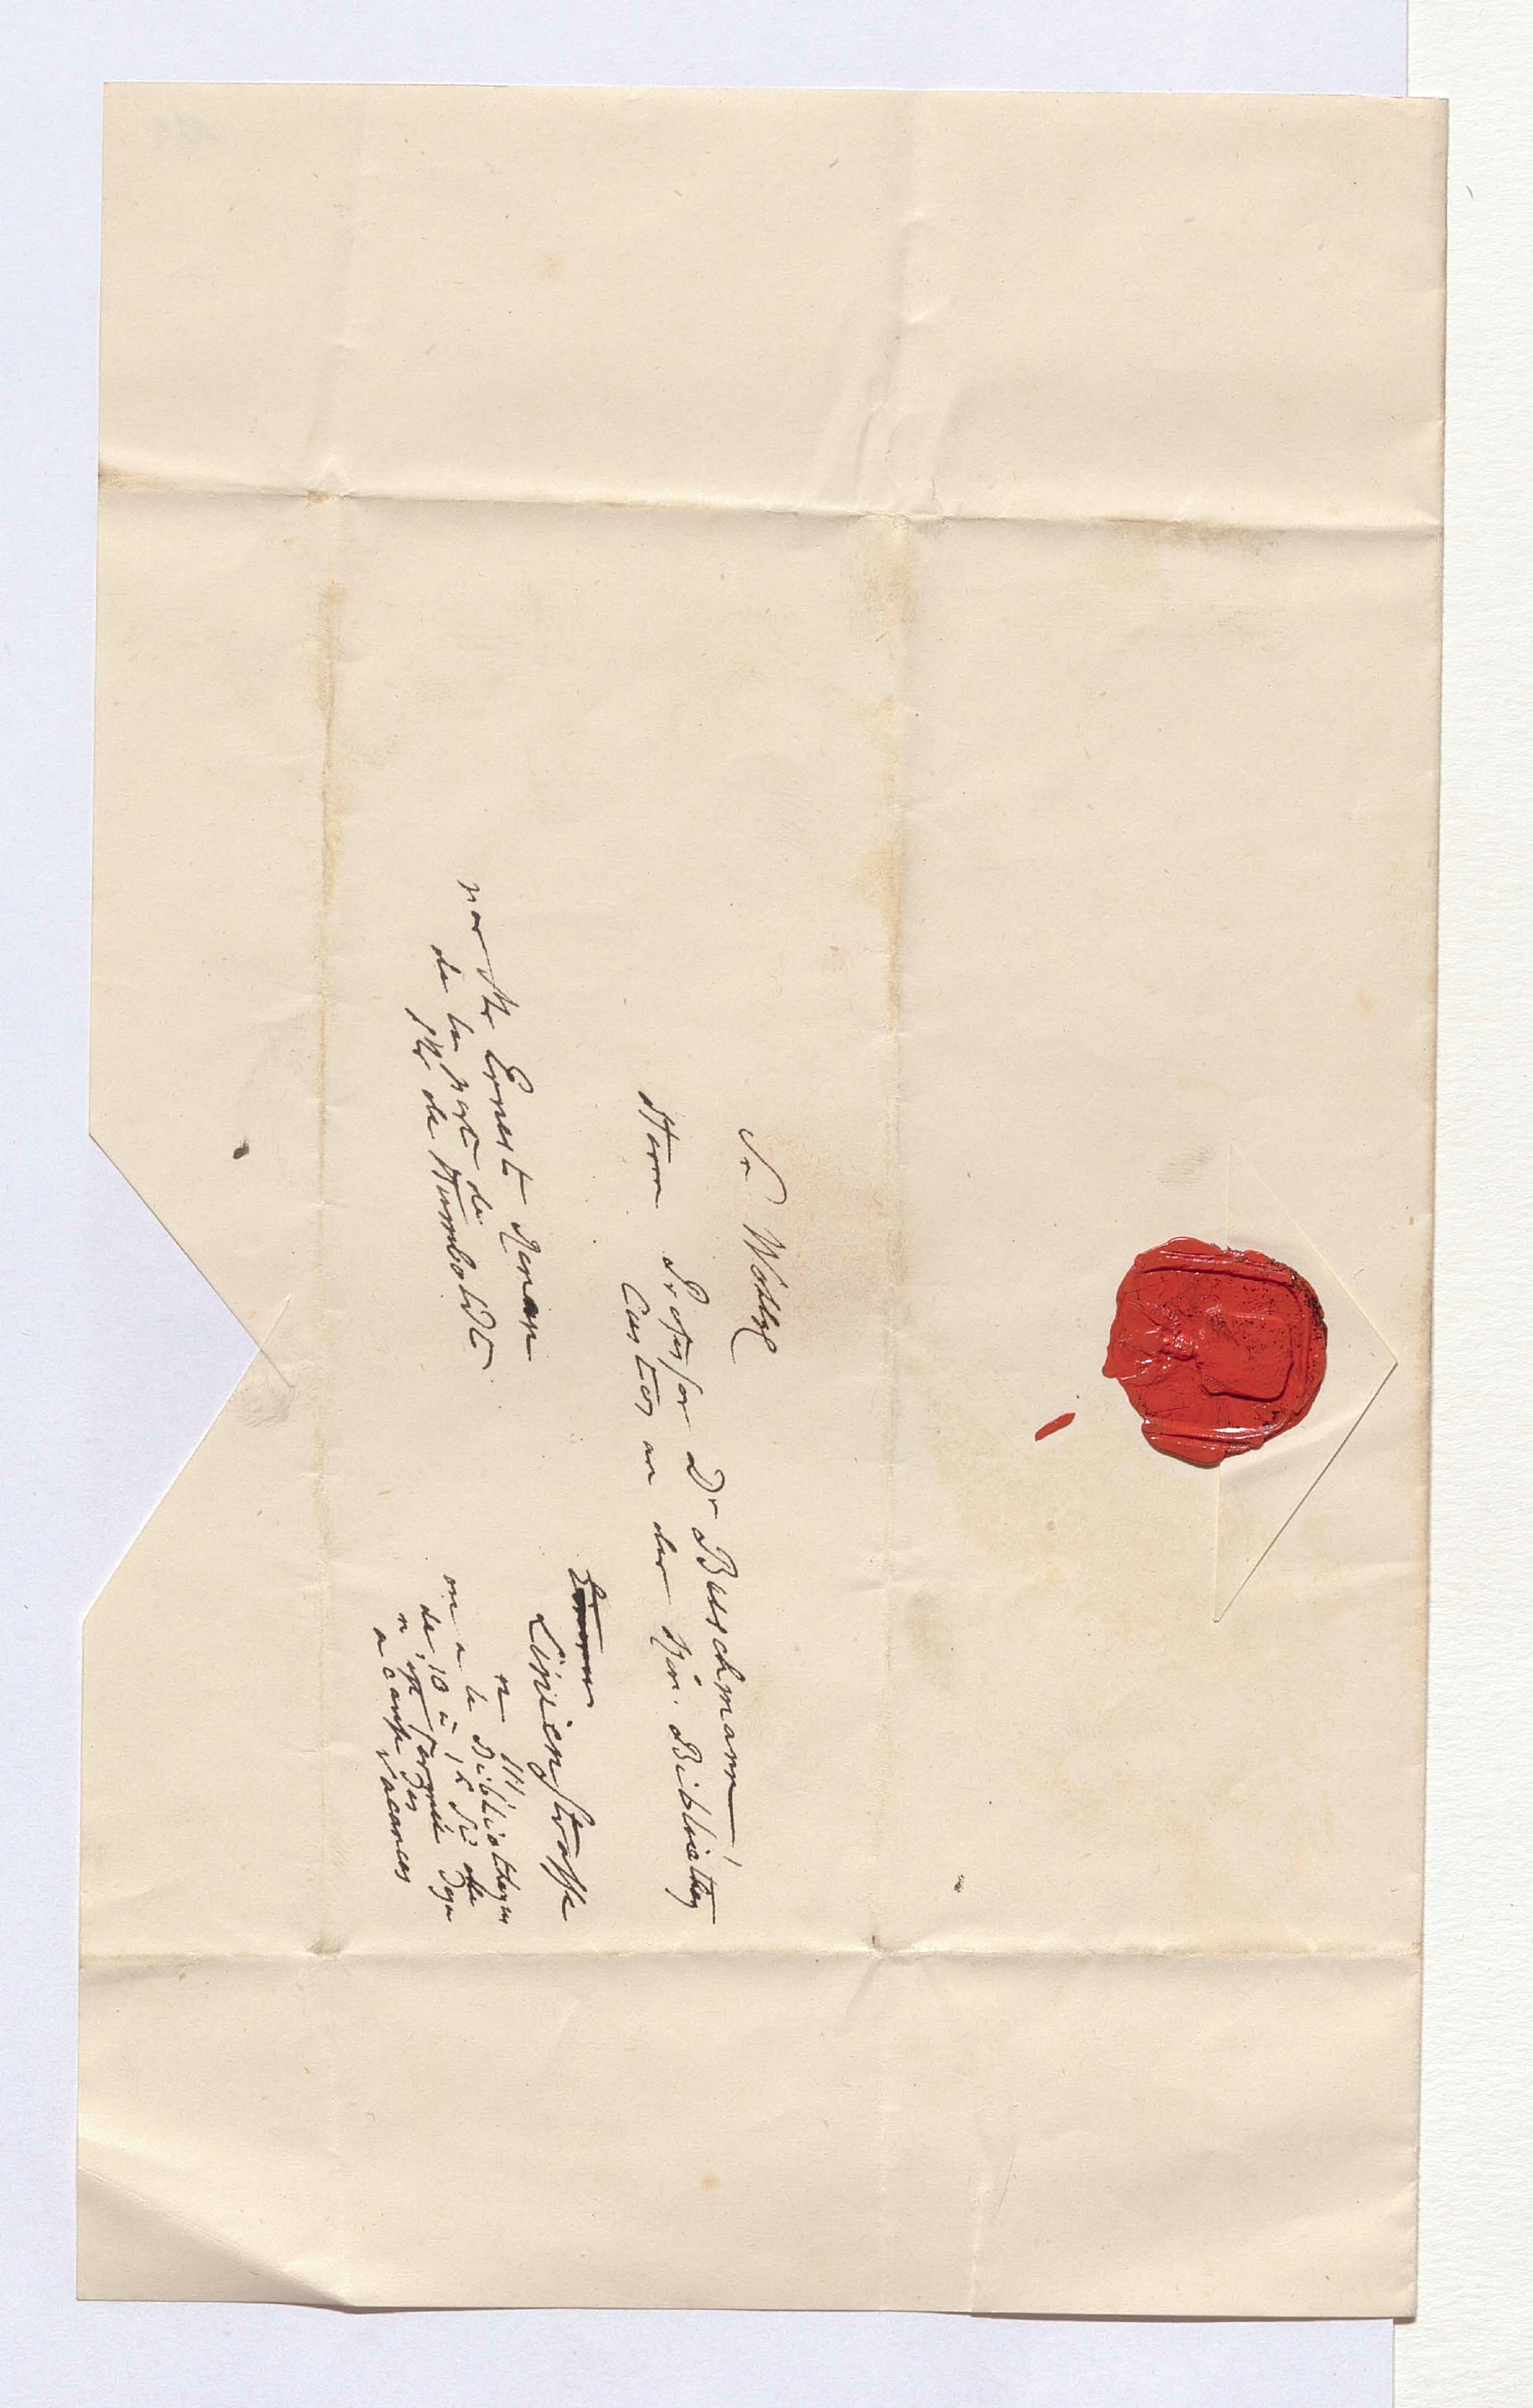 Sr Wohlg
Herrn Professor Dr Buschmann
Custos an der Kön. Bibliothek
Linienstrasse
n
ou a la Bibliothèque
de 10 à
n'est fermée que
a cause des vacances
par Mr Ernest Renan
de la part de
Mr de Humboldt